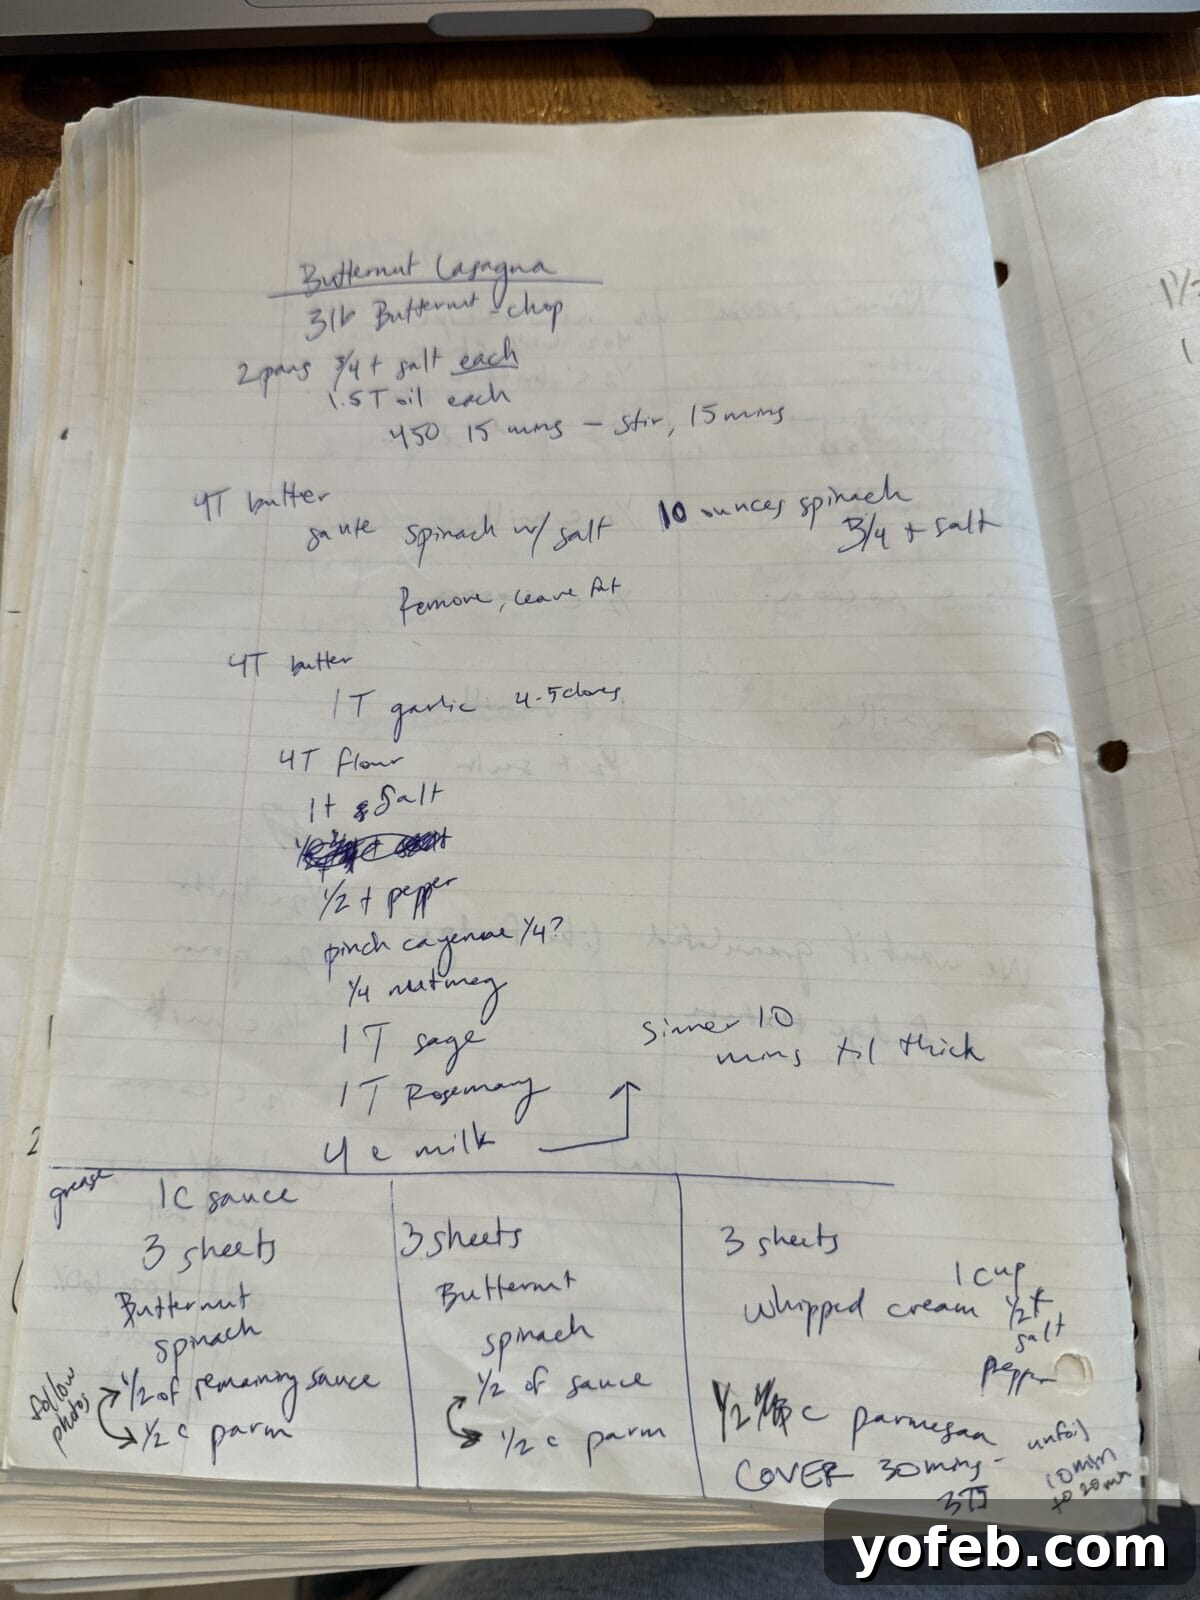 Butternut Lasagna
3lb Butternut - chop
2 pans 3/4 t salt each
1.5 T oil each
450 15 mins - stir, 15 mins
4T butter
saute spinach w/ salt
10 ounces spinach
3/4 t salt
Remove, leave fat
4T butter
1 T garlic 4-5 cloves
4T flour
1t salt
1/2 t pepper
pinch cayenne 1/4?
1/4 nutmeg
1 T sage
1 T Rosemary
4 c milk
simer 10
mins til thick
grease 1c sauce
3 sheets
Butternut
spinach
1/2 of remaining sauce
1/2 c parm
follow
photos
3 sheets
Butternut
spinach
1/2 of sauce
1/2 c parm
3 sheets
1 cup
whipped cream 1/2 t
salt
pepper
1/2 c parmesan
COVER 30 mins -
375
unfoil
10 min
to 20 min
yofeb.com